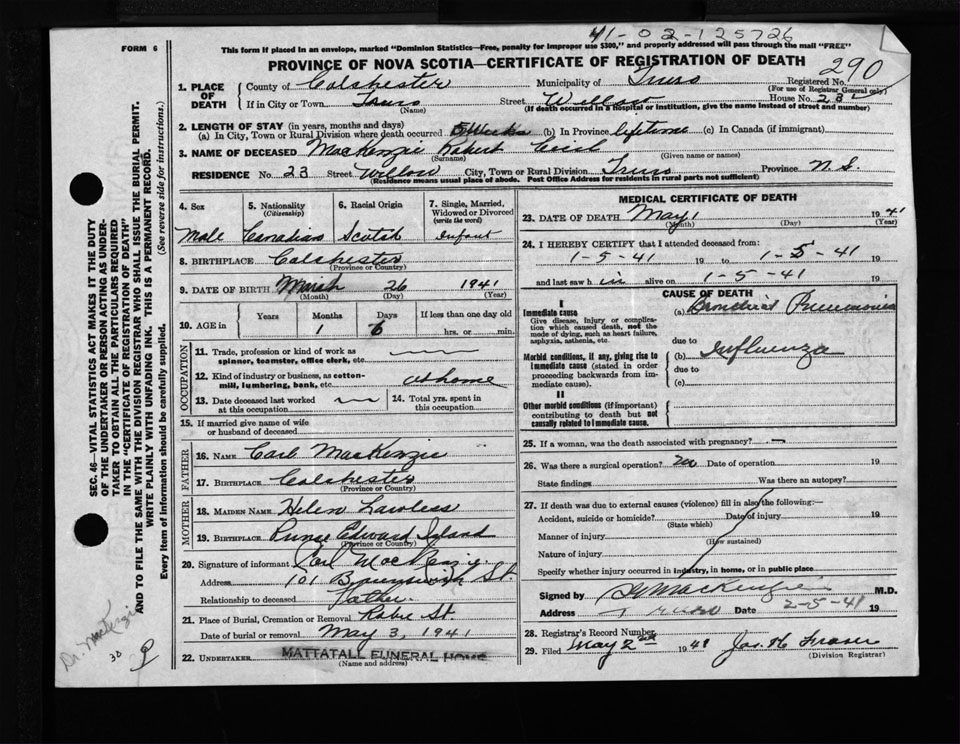 41-02-125726
FORM 6
This form if placed in an envelope, marked "Dominion Statistics—Free, penalty for improper use $300," and properly addressed will pass through the mail "FREE"
PROVINCE OF NOVA SCOTIA—CERTIFICATE OF REGISTRATION OF DEATH
290
1. PLACE OF DEATH County of Colchester Municipality of Truro Registered No.
(For use of Registrar General only)
If in City or Town Truro Street Willow House No. 23
(Name) (If death occurred in a Hospital or Institution, give the name instead of street and number)
2. LENGTH OF STAY (in years, months and days)
(a) In City, Town or Rural Division where death occurred 5 Weeks (b) In Province lifetime (c) In Canada (if immigrant)
3. NAME OF DECEASED MacKenzie Robert Cecil
(Surname) (Given name or names)
RESIDENCE No. 23 Street Willow City, Town or Rural Division Truro Province N.S.
(Residence means usual place of abode. Post Office Address for residents in rural parts not sufficient)
4. Sex 5. Nationality 6. Racial Origin 7. Single, Married,
(Citizenship) Widowed or Divorced
(write the word)
Male Canadian Scotch Infant
8. BIRTHPLACE Colchester
(Province or Country)
9. DATE OF BIRTH March 26 1941
(Month) (Day) (Year)
10. AGE in Years Months Days If less than one day old
1 6 hrs. or min.
OCCUPATION
11. Trade, profession or kind of work as
spinner, teamster, office clerk, etc.
12. Kind of industry or business, as cotton-
mill, lumbering, bank, etc. at home
13. Date deceased last worked 14. Total yrs. spent in
at this occupation this occupation
15. If married give name of wife
or husband of deceased
FATHER
16. NAME Carl MacKenzie
17. BIRTHPLACE Colchester
(Province or Country)
MOTHER
18. MAIDEN NAME Helen Lawless
19. BIRTHPLACE Prince Edward Island
(Province or Country)
20. Signature of informant Carl MacKenzie
Address 101 Brunswick St.
Relationship to deceased Father
21. Place of Burial, Cremation or Removal Robie St.
Date of burial or removal May 3, 1941
22. UNDERTAKER MATTATALL FUNERAL HOME
(Name and address)
MEDICAL CERTIFICATE OF DEATH
23. DATE OF DEATH May 1 1941
(Month) (Day) (Year)
24. I HEREBY CERTIFY that I attended deceased from:
1-5-41 19 to 1-5-41
and last saw h im alive on 1-5-41 19
CAUSE OF DEATH
I
Immediate cause (a) Bronchial Pneumonia
Give disease, injury or complica-
tion which caused death, not the
mode of dying, such as heart failure,
asphyxia, asthenia, etc.
due to
Morbid conditions, if any, giving rise to
immediate cause (stated in order
proceeding backwards from im-
mediate cause).
(b) Influenza
due to
(c)
II
Other morbid conditions (if important)
contributing to death but not
causally related to immediate cause.
25. If a woman, was the death associated with pregnancy?
26. Was there a surgical operation? No Date of operation 19
State findings Was there an autopsy?
27. If death was due to external causes (violence) fill in also the following:—
Accident, suicide or homicide? Date of injury 19
(State which)
Manner of injury
(How sustained)
Nature of injury
Specify whether injury occurred in industry, in home, or in public place
Signed by MacKenzie M.D.
Address Truro Date 2-5-41 19
28. Registrar's Record Number
29. Filed May 2nd 1941 Jas. H. Fraser
(Division Registrar)
SEC. 46—VITAL STATISTICS ACT MAKES IT THE DUTY
OF THE UNDERTAKER OR PERSON ACTING AS UNDER-
TAKER TO OBTAIN ALL THE PARTICULARS REQUIRED
IN THE "CERTIFICATE OF REGISTRATION OF DEATH"
AND TO FILE THE SAME WITH THE DIVISION REGISTRAR WHO SHALL ISSUE THE BURIAL PERMIT.
WRITE PLAINLY WITH UNFADING INK. THIS IS A PERMANENT RECORD.
Every item of information should be carefully supplied. (See reverse side for instructions.)
Dr. MacKenzie
30